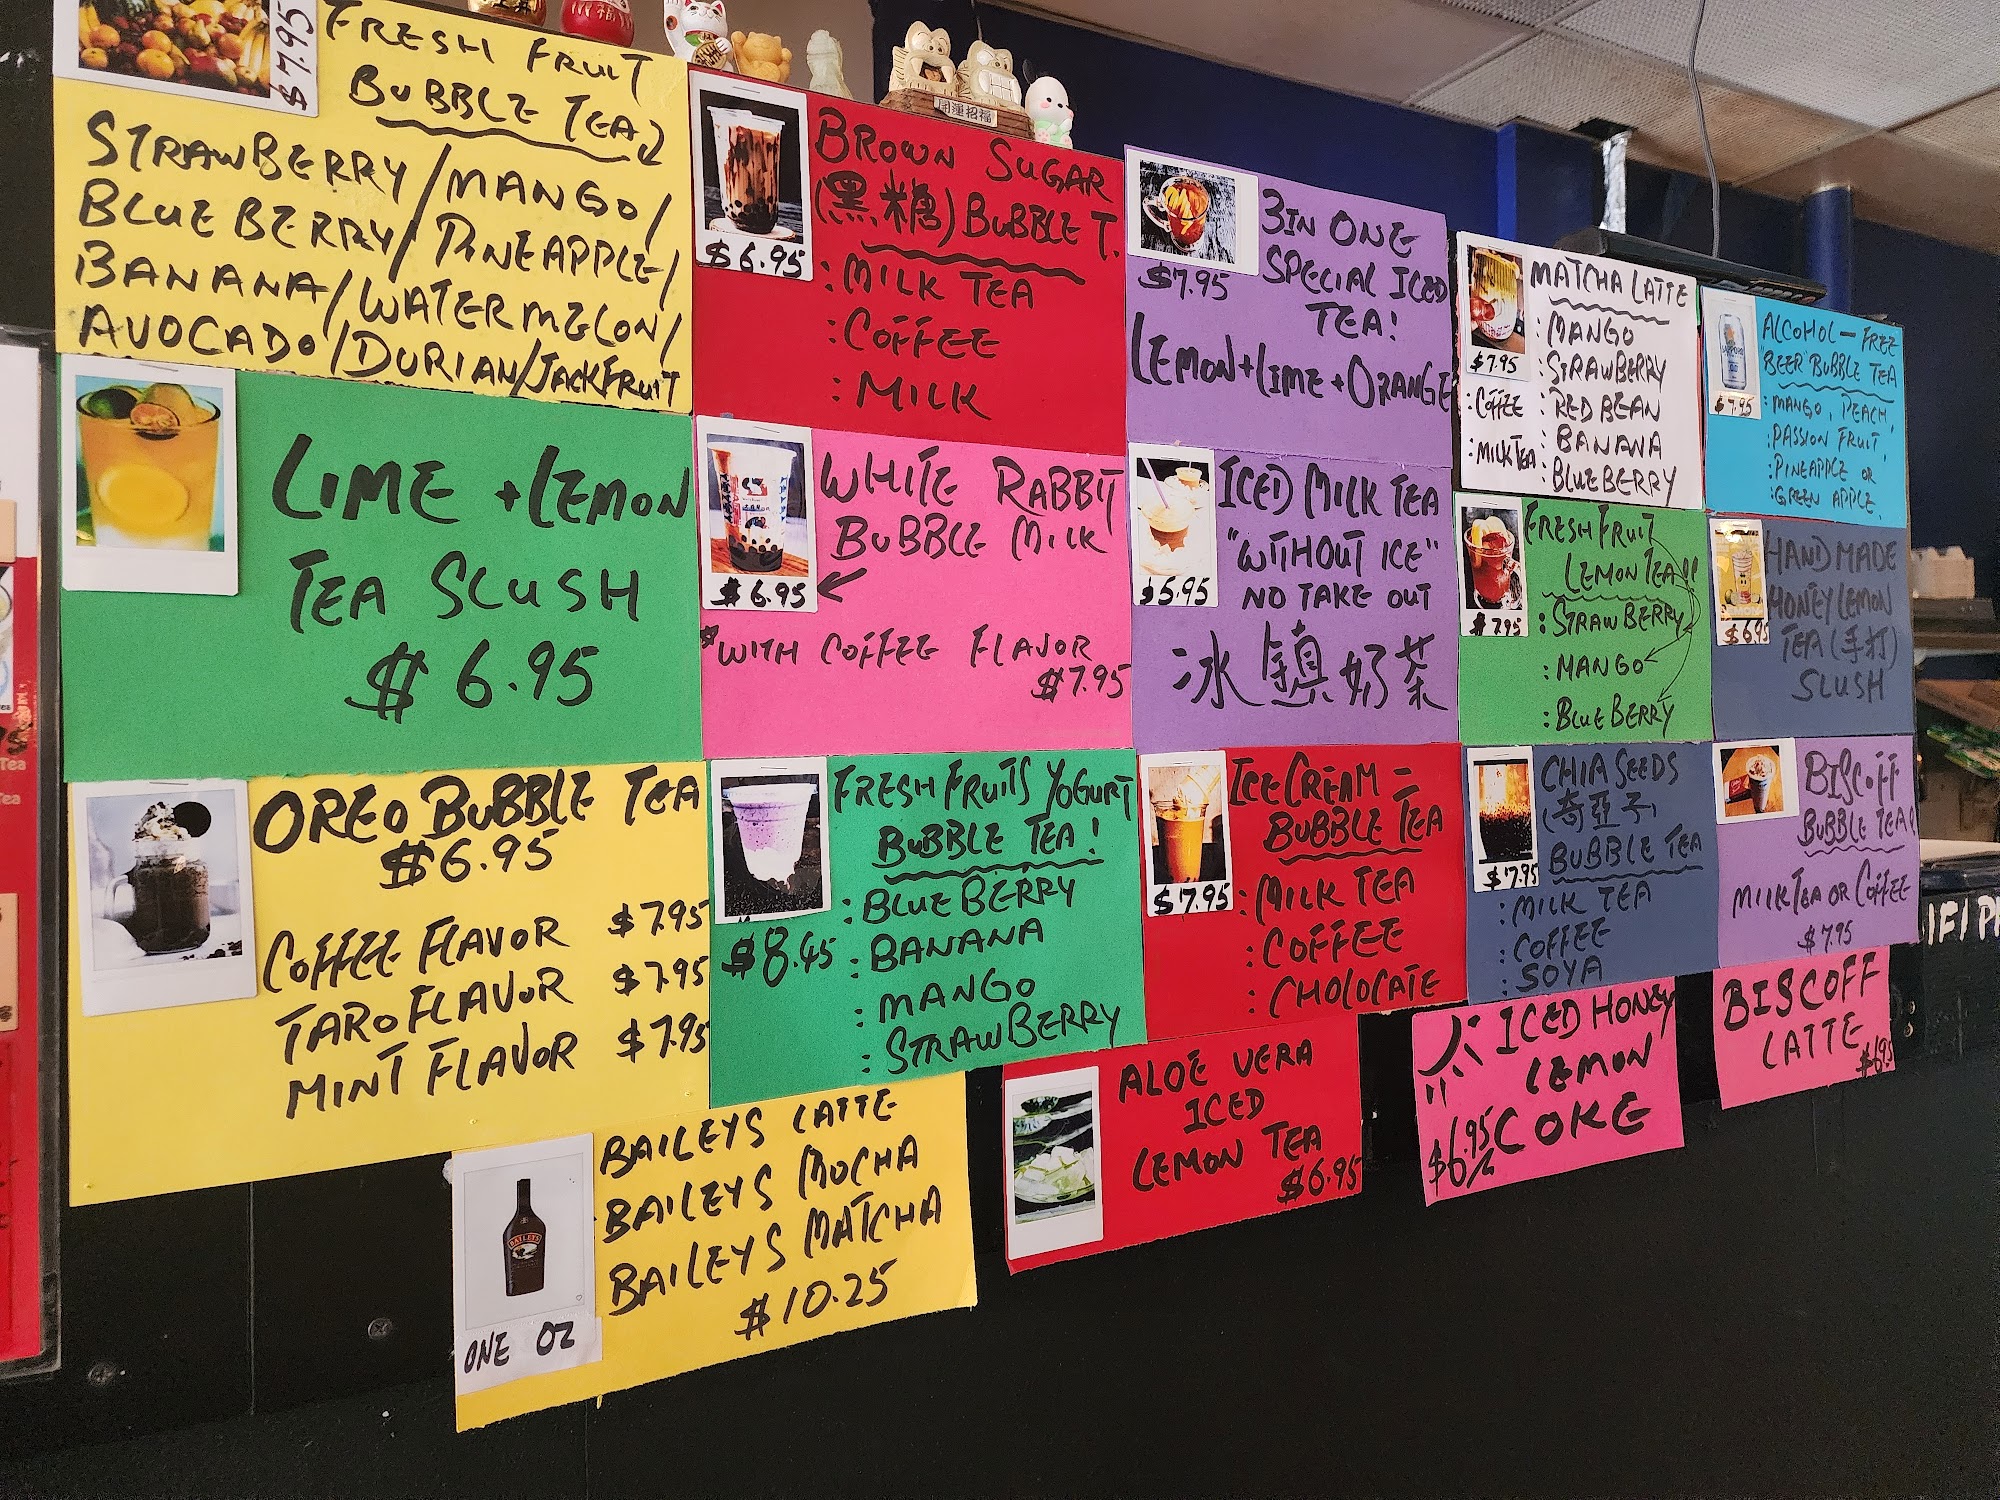 $7.95
FRESH FRUIT
BUBBLE TEA
STRAWBERRY/MANGO/
BLUEBERRY/PINEAPPLE/
BANANA/WATERMELON/
AVOCADO/DURIAN/JACKFRUIT
LIME + LEMON
TEA SLUSH
$6.95
OREO BUBBLE TEA
$6.95
COFFEE FLAVOR $7.95
TARO FLAVOR $7.95
MINT FLAVOR $7.95
BAILEYS LATTE
BAILEYS MOCHA
BAILEYS MATCHA
$10.25
BAILEYS
ONE OZ
開運招福
BROWN SUGAR
(黑糖) BUBBLE T.
$6.95
:MILK TEA
:COFFEE
:MILK
WHITE RABBIT
BUBBLE MILK
$6.95
*WITH COFFEE FLAVOR
$7.95
FRESH FRUITS YOGURT
BUBBLE TEA!
$8.45
:BLUEBERRY
:BANANA
:MANGO
:STRAWBERRY
3 IN ONE
SPECIAL ICED
TEA!
$7.95
LEMON+LIME+ORANGE
ICED MILK TEA
"WITHOUT ICE"
NO TAKE OUT
$5.95
冰鎮奶茶
ICE CREAM -
BUBBLE TEA
$7.95
:MILK TEA
:COFFEE
:CHOLOCATE
ALOE VERA
ICED
LEMON TEA
$6.95
MATCHA LATTE
$7.95
:MANGO
:STRAWBERRY
:COFFEE :RED BEAN
:MILK TEA :BANANA
:BLUEBERRY
FRESH FRUIT
LEMON TEA
$7.95
:STRAWBERRY
:MANGO
:BLUEBERRY
CHIA SEEDS
(奇亞子)
BUBBLE TEA
$7.95
:MILK TEA
:COFFEE
:SOYA
ICED HONEY
LEMON
COKE
$6.95
ALCOHOL-FREE
BEER BUBBLE TEA
$7.95
:MANGO, PEACH,
:PASSION FRUIT,
:PINEAPPLE OR
:GREEN APPLE.
HANDMADE
HONEY LEMON
TEA (手打)
SLUSH
LEMON
$6.95
BISCOFF
BUBBLE TEA!
MILK TEA OR COFFEE
$7.95
BISCOFF
LATTE
$6.95